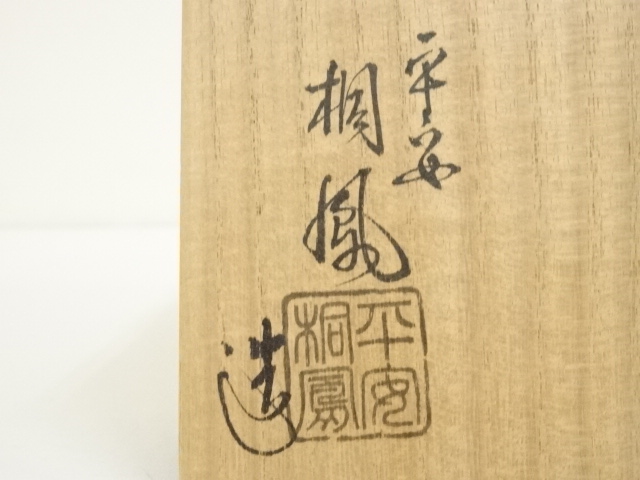 平安
桐鳳
造
平安
桐鳳